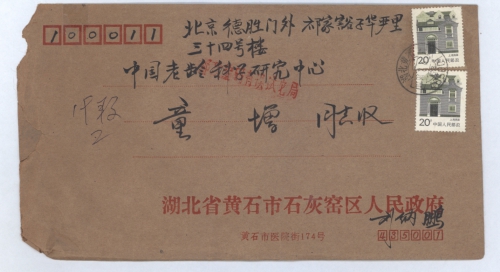 100011
北京德胜门外祁家豁子华严里
三十四号楼
中国老龄科学研究中心
童增 同志收
20分
中国人民邮政
20分
中国人民邮政
湖北省黄石市石灰窑区人民政府
刘炳鹏
黄石市医院街174号
435001